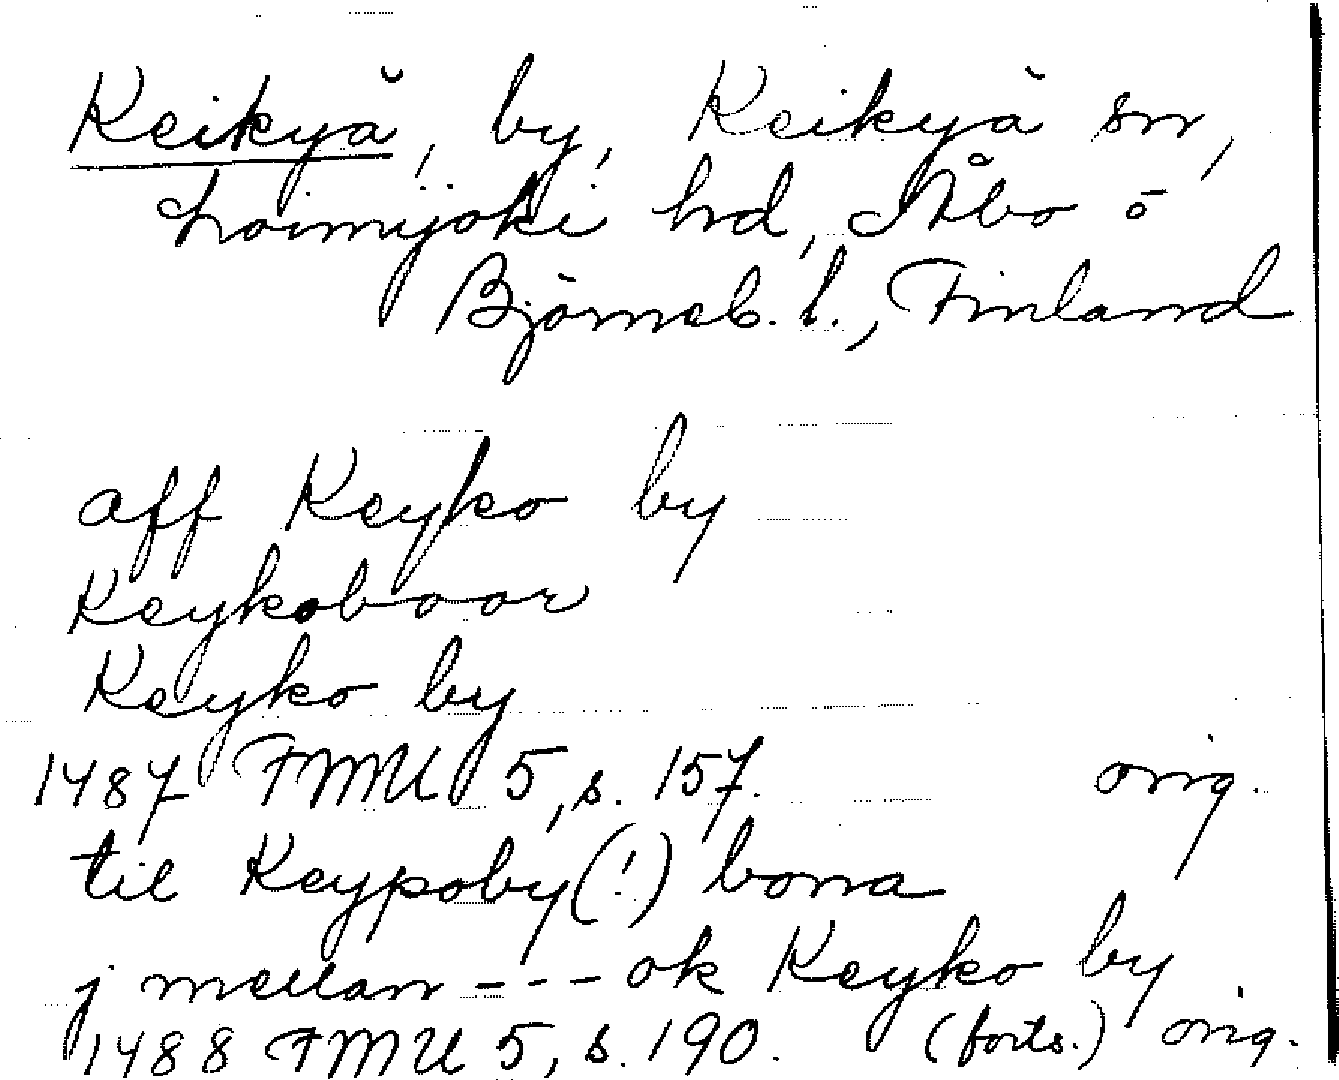 Keikyä, by, Keikyä sn,
Loimijoki hd, Åbo o
Björneb. l., Finland
aff Keyko by
Keykoboar
Keyko by
1487 FMU 5, s. 157. orig.
til Keypoby(!) bona
j mellan --- ok Keyko by
1488 FMU 5, s. 190. (forts.) orig.